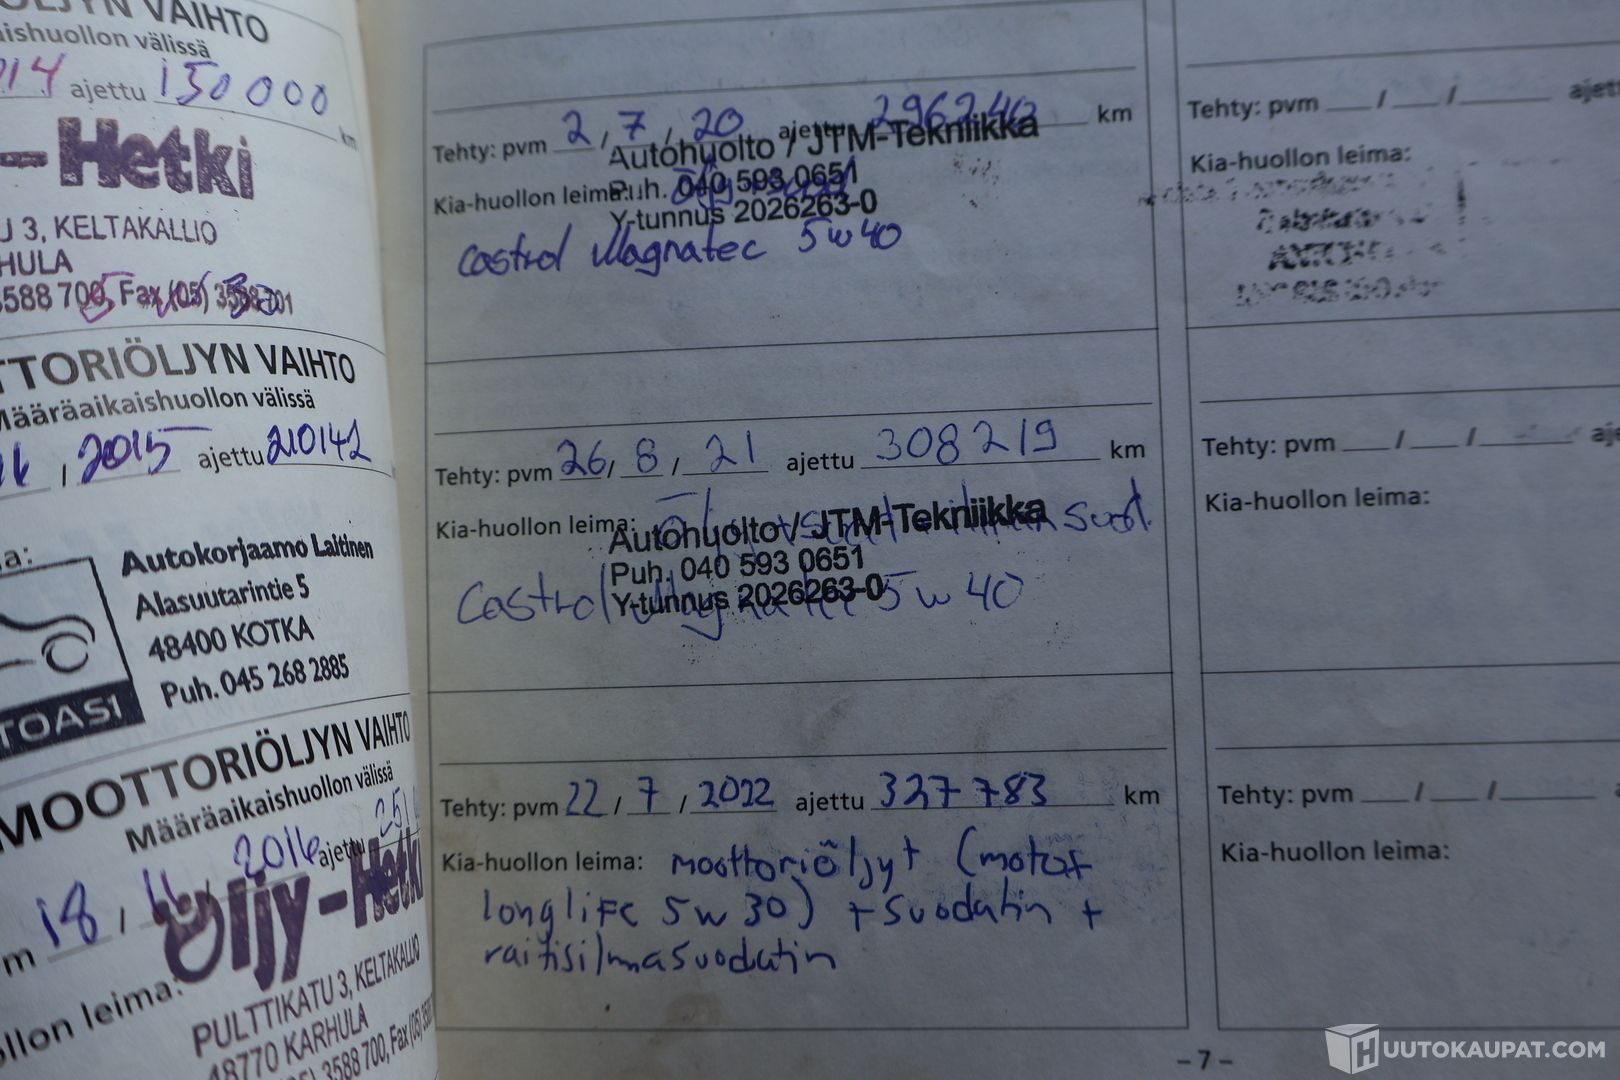 ÖLJYN VAIHTO
aishuollon välissä
014 ajettu 150 000
km
- Hetki
U 3, KELTAKALLIO
HULA
3588 700, Fax (05) 3588 701
TTORIÖLJYN VAIHTO
Määräaikaishuollon välissä
, 2015 ajettu 210142
a:
Autokorjaamo Laitinen
Alasuutarintie 5
48400 KOTKA
Puh. 045 268 2885
TOASI
MOOTTORIÖLJYN VAIHTO
Määräaikaishuollon välissä
m 18 / 11 / 2016 ajettu 251
ollon leima:
Öljy-Hetki
PULTTIKATU 3, KELTAKALLIO
48770 KARHULA
05) 3588 700, Fax (05) 358
Tehty: pvm 2 / 7 / 20 ajettu 296240 km
Autohuolto / JTM-Tekniikka
Kia-huollon leima: Puh. 040 593 0651
Y-tunnus 2026263-0
Castrol Magnatec 5w40
Tehty: pvm 26 / 8 / 21 ajettu 308219 km
Kia-huollon leima:
Autohuolto / JTM-Tekniikka
Puh. 040 593 0651
Y-tunnus 2026263-0
Castrol Magnatec 5w40
Tehty: pvm 22 / 7 / 2022 ajettu 327 783 km
Kia-huollon leima: moottoriöljyt (motox
longlife 5w30) + suodatin +
raitisilmasuodatin
Tehty: pvm / / ajett
Kia-huollon leima:
Tehty: pvm / / aje
Kia-huollon leima:
Tehty: pvm / / a
Kia-huollon leima:
– 7 –
HUUTOKAUPAT.COM